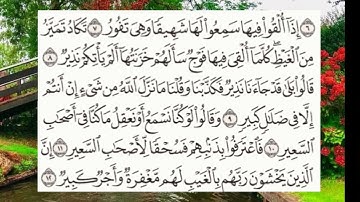 ﴿٦﴾ إِذَا أُلْقُوا فِيهَا سَمِعُوا لَهَا شَهِيقًا وَهِيَ تَفُورُ ﴿٧﴾ تَكَادُ تَمَيَّزُ
مِنَ الْغَيْظِ ۖ كُلَّمَا أُلْقِيَ فِيهَا فَوْجٌ سَأَلَهُمْ خَزَنَتُهَا أَلَمْ يَأْتِكُمْ نَذِيرٌ ﴿٨﴾
قَالُوا بَلَىٰ قَدْ جَاءَنَا نَذِيرٌ فَكَذَّبْنَا وَقُلْنَا مَا نَزَّلَ اللَّهُ مِن شَيْءٍ إِنْ أَنتُمْ
إِلَّا فِي ضَلَالٍ كَبِيرٍ ﴿٩﴾ وَقَالُوا لَوْ كُنَّا نَسْمَعُ أَوْ نَعْقِلُ مَا كُنَّا فِي أَصْحَابِ
السَّعِيرِ ﴿١٠﴾ فَاعْتَرَفُوا بِذَنبِهِمْ فَسُحْقًا لِّأَصْحَابِ السَّعِيرِ ﴿١١﴾ إِنَّ
الَّذِينَ يَخْشَوْنَ رَبَّهُم بِالْغَيْبِ لَهُم مَّغْفِرَةٌ وَأَجْرٌ كَبِيرٌ ﴿١٢﴾